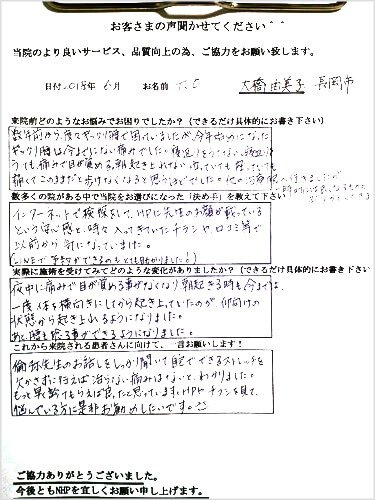 お客さまの声聞かせてください＾＾
当院のより良いサービス、品質向上の為、ご協力をお願い致します。
日付 2018年 6月 お名前 T.O 大橋由美子 長岡市
来院前どのようなお悩みでお困りでしたか？（できるだけ具体的にお書き下さい）
数年前から度々ぎっくり腰で困っていましたが、今年初めになった
ぎっくり腰は今までにない痛みでした。寝返りをうてない、
うっても痛みで目が覚める、朝起き上がれない、立っていても座っていても
痛くてこのままだと歩けなくなると思うほどでした。他の治療院へ行きましたが
数多くの院がある中で当院をお選びになった「決め手」を教えて下さい
インターネットで検索をして、HPに先生のお顔が載っている
という安心感と、時々入ってきていたチラシや口コミ等で
以前から気になっていました。
LINEで予約ができるのもとても助かりました！
実際に施術を受けてみてどのような変化がありましたか？（できるだけ具体的にお書き下さい
夜中に痛みで目が覚める事がなくなり、朝起きる時も今までは
一度体を横向きにしてから起き上っていたのが、仰向けの
状態から起き上れるようになりました。
あと、腰を捻る事ができるようになりました。
これから来院される患者さんに向けて、一言お願いします！
倫弥先生のお話しをしっかり聞いて自宅でできるストレッチを
欠かさず行えば治らない痛みはないと、わかりました。
もっと早く来てもらえば良かったと思っています。HPやチラシを見て、
悩んでいる方に是非お勧めしたいです。
ご協力ありがとうございました。
今後ともNHPを宜しくお願い申し上げます。